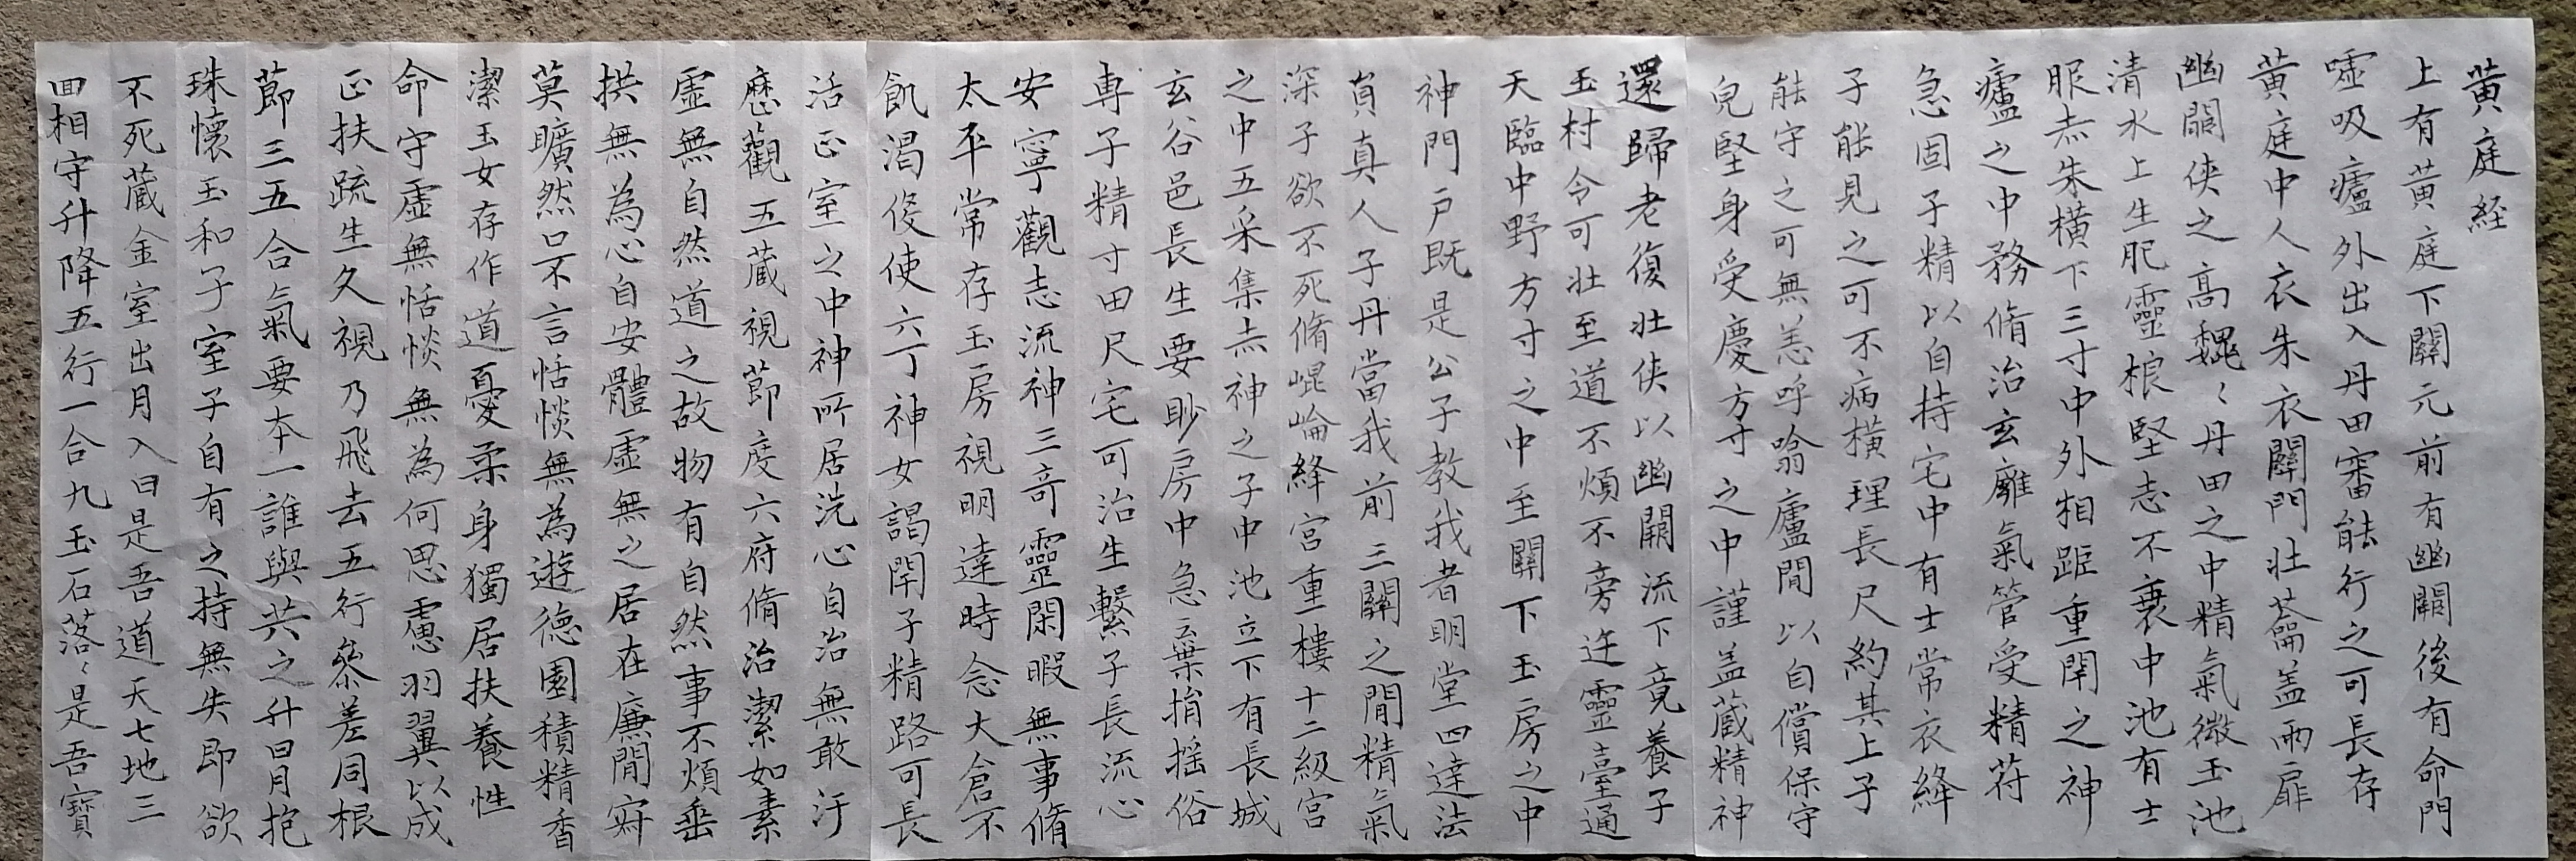 黃庭經
上有黃庭下關元前有幽闕後有命門
噓吸廬外出入丹田審能行之可長存
黃庭中人衣朱衣關門壯蘥蓋兩扉
幽闕俠之高魏〻丹田之中精氣微玉池
清水上生肥靈根堅志不衰中池有士
服赤朱橫下三寸中外相距重閉之神
廬之中務脩治玄廱氣管受精苻
急固子精以自持宅中有士常衣絳
子能見之可不病橫理長尺約其上子
能守之可無恙呼噏廬間以自償保守
皃堅身受慶方寸之中謹盖藏精神
還歸老復壯俠以幽闕流下竟養子
玉村令可壯至道不煩不旁迕靈臺通
天臨中野方寸之中至關下玉房之中
神門户既是公子教我者明堂四達法
真人子丹當我前三關之間精氣
深子欲不死脩崐崘絳宮重樓十二級宮
之中五采集赤神之子中池立下有長城
玄谷邑長生要眇房中急棄捐搖俗
專子精寸田尺宅可治生繫子長流心
安寧觀志流神三奇靈閑暇無事脩
太平常存玉房視明達時念大倉不
飢渴役使六丁神女謁閉子精路可長
活正室之中神所居洗心自治無敢汙
歷觀五藏視節度六府脩治潔如素
虛無自然道之故物有自然事不煩垂
拱無為心自安體虛無之居在廉間寂
莫曠然口不言恬惔無為遊德園積精香
潔玉女存作道憂柔身獨居扶養性
命守虛無恬惔無為何思慮羽翼以成
正扶疏生久視乃飛去五行參差同根
節三五合氣要本一誰與共之升日月抱
珠懷玉和子室子自有之持無失即欲
不死藏金室出月入日是吾道天七地三
回相守升降五行一合九玉石落〻是吾寶